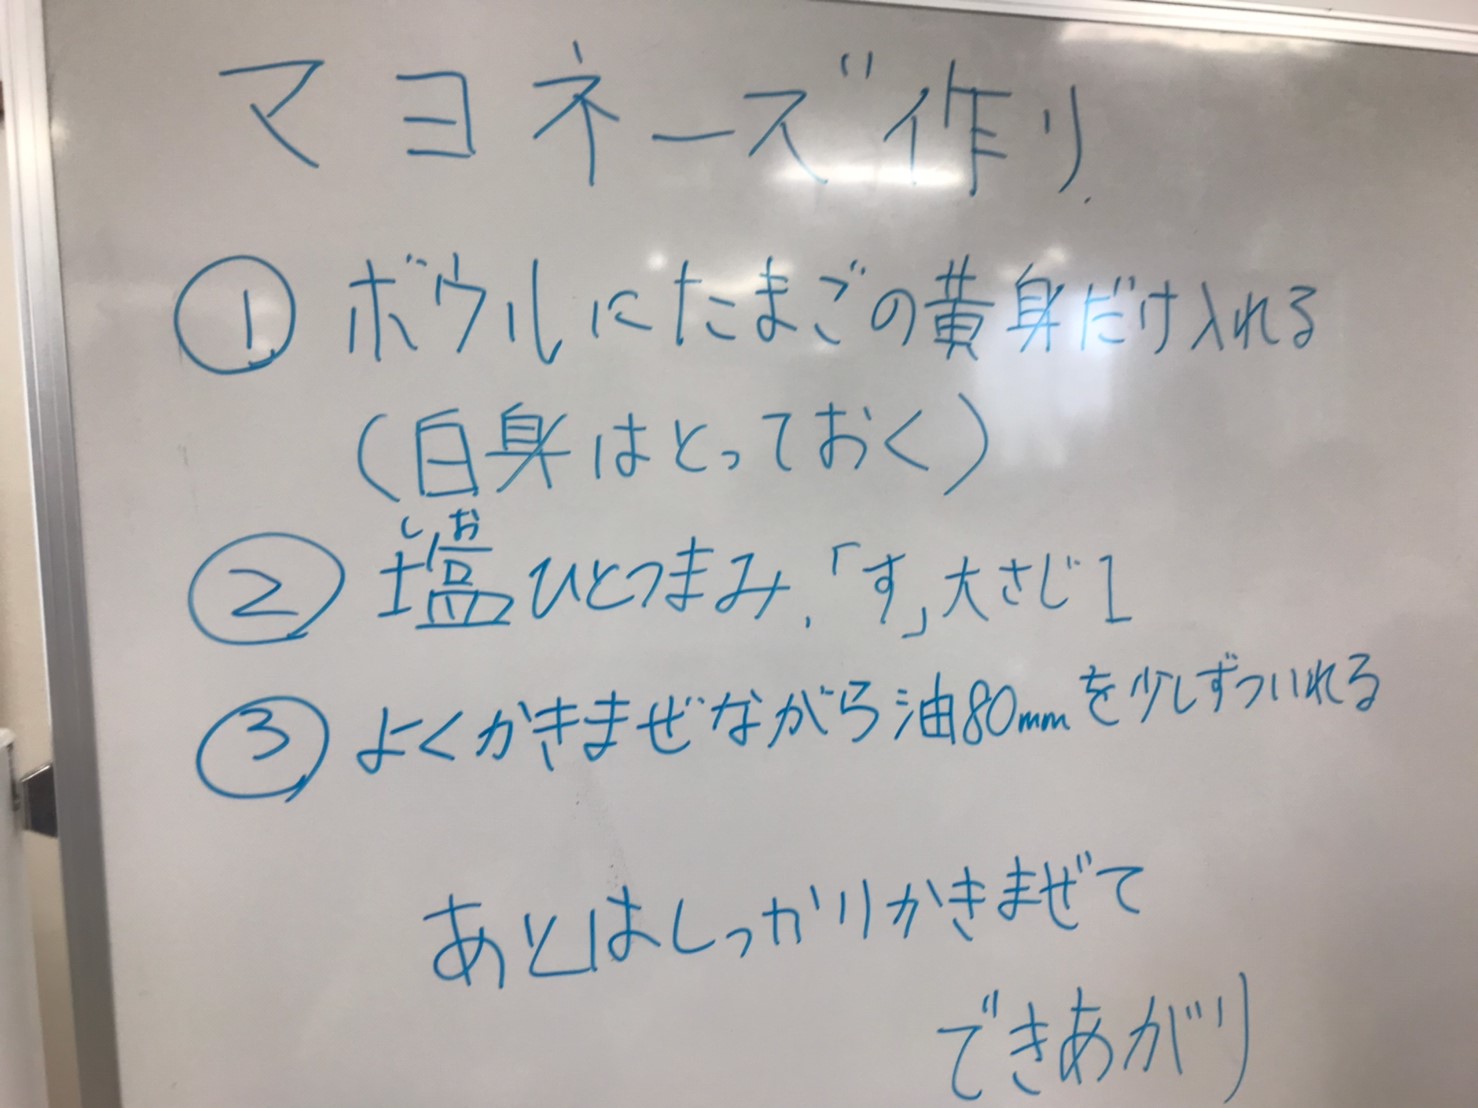 マヨネーズ作り
① ボウルにたまごの黄身だけ入れる
(白身はとっておく)
しお
② 塩ひとつまみ,「す」大さじ1
③ よくかきまぜながら油80mmを少しずついれる
あとはしっかりかきまぜて
できあがり